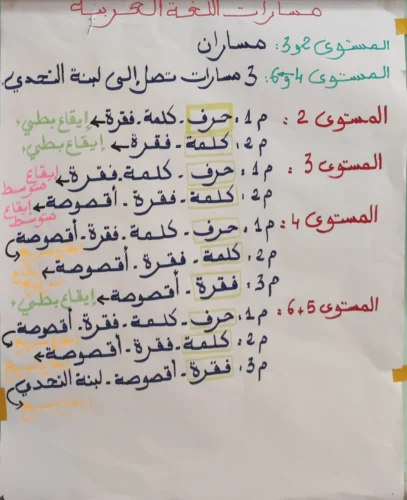 مسارات اللغة العربية
المستوى 2 و 3: مساران
المستوى 4 و 5 و 6: 3 مسارات تصل إلى لبنة التحدي.
المستوى 2: م1: حرف - كلمة - فقرة ← إيقاع بطيء
م2: كلمة - فقرة ← إيقاع بطيء
المستوى 3: م1: حرف - كلمة - فقرة ← إيقاع متوسط
م2: كلمة - فقرة - أقصوصة ← إيقاع متوسط
المستوى 4: م1: حرف - كلمة - فقرة - أقصوصة
م2: كلمة - فقرة - أقصوصة ←
م3: فقرة - أقصوصة ← إيقاع بطيء
المستوى 5+6: م1: حرف - كلمة - فقرة - أقصوصة
م2: كلمة - فقرة - أقصوصة ← إيقاع سريع
م3: فقرة - أقصوصة - لبنة التحدي
إيقاع سريع